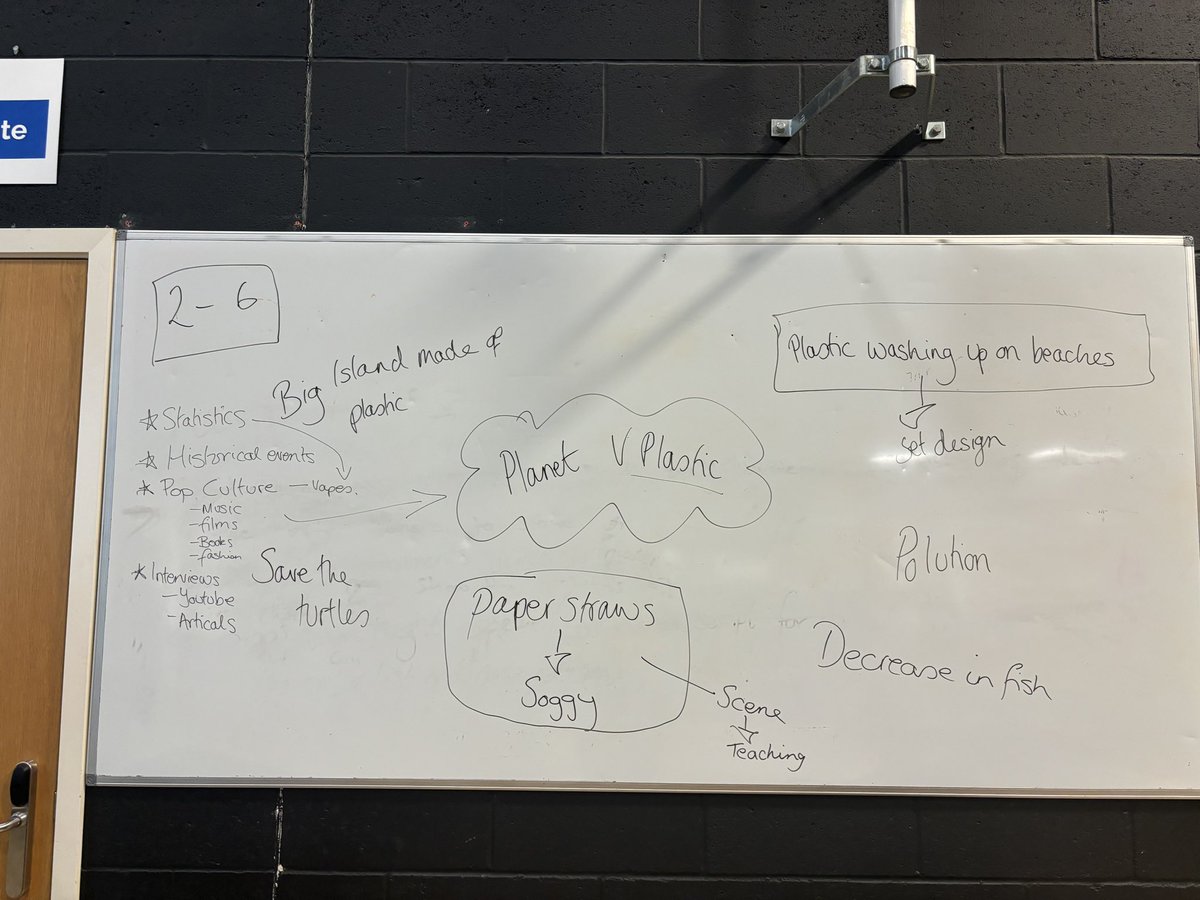 te
2 - 6
Big Island made of
plastic
☆ Statistics
☆ Historical events
☆ Pop Culture - Vapes.
- Music
- films
- Books
- fashion
☆ Interviews
- Youtube
- Articals
Save the
turtles
Planet V Plastic
paper straws
Soggy
Scene
Teaching
Plastic washing up on beaches
set design
Polution
Decrease in fish